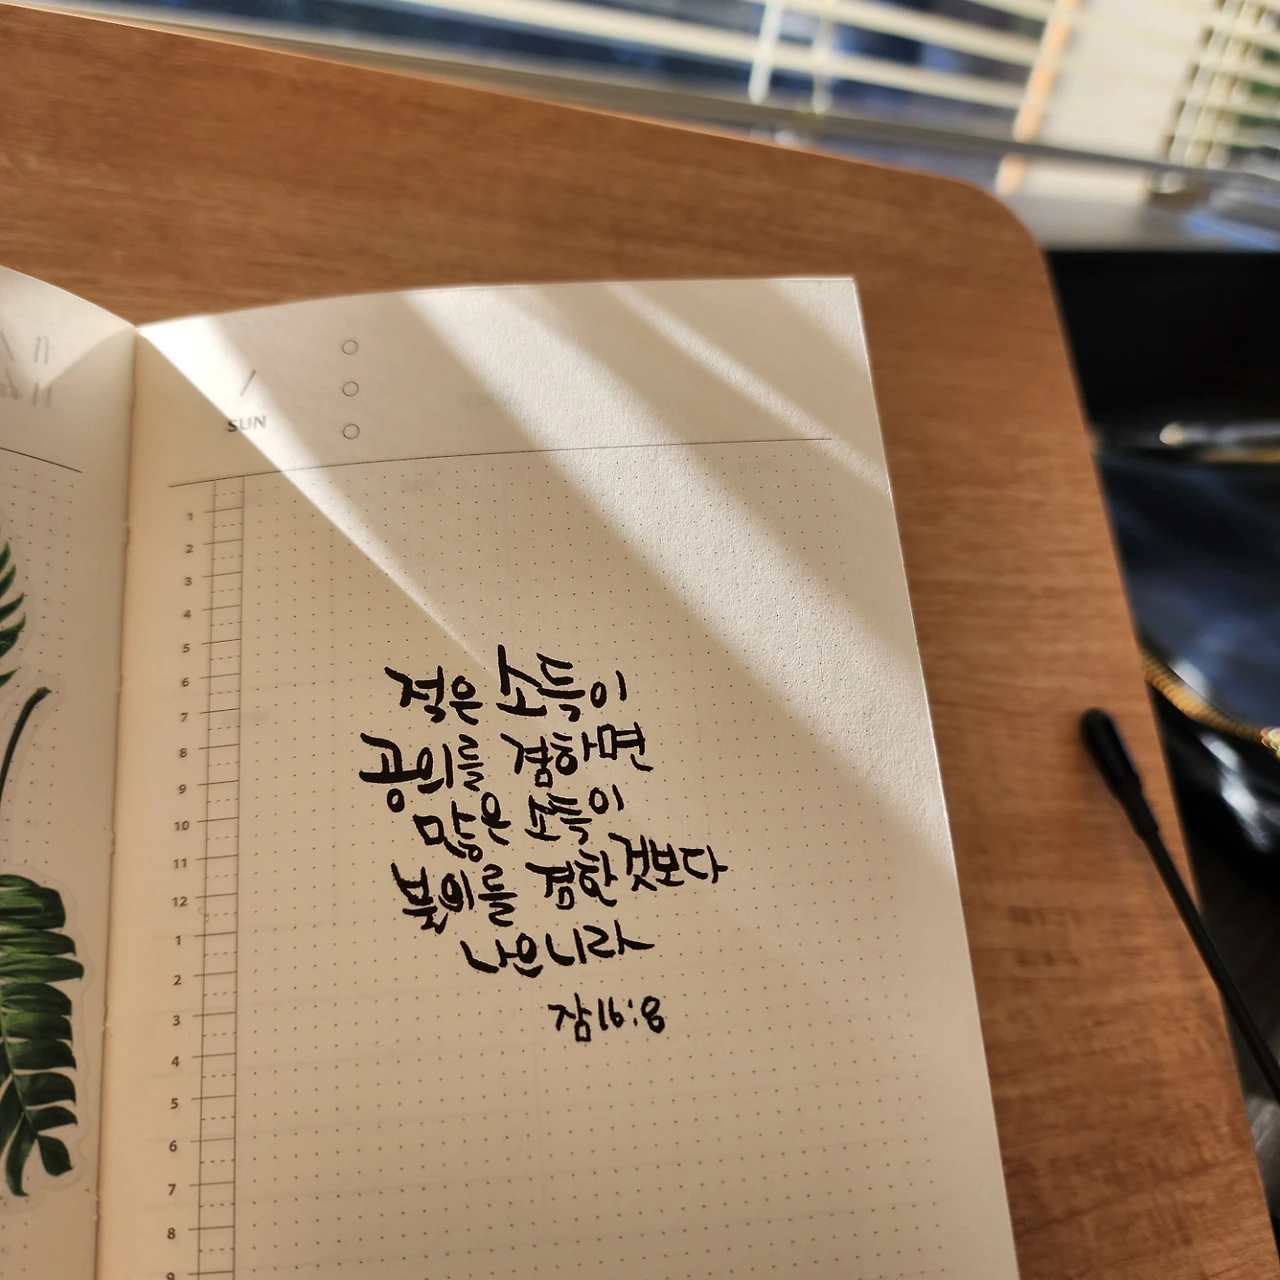 SUN
1
2
3
4
5
6
7
8
9
10
11
12
1
2
3
4
5
6
7
8
9
적은 소득이
공의를 겸하면
많은 소득이
불의를 겸한것보다
나으니라
잠16:8